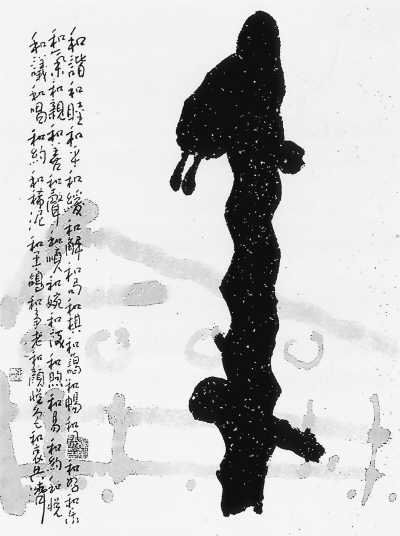 和諧和睦和平和緩和解和局和棋和藹和暢和風和好和樂
和氣和親和善和聲和順和婉和和煦和易和約和悅
和議和唱和約和稀泥和平鴿和事老和顏悅色和衷共濟